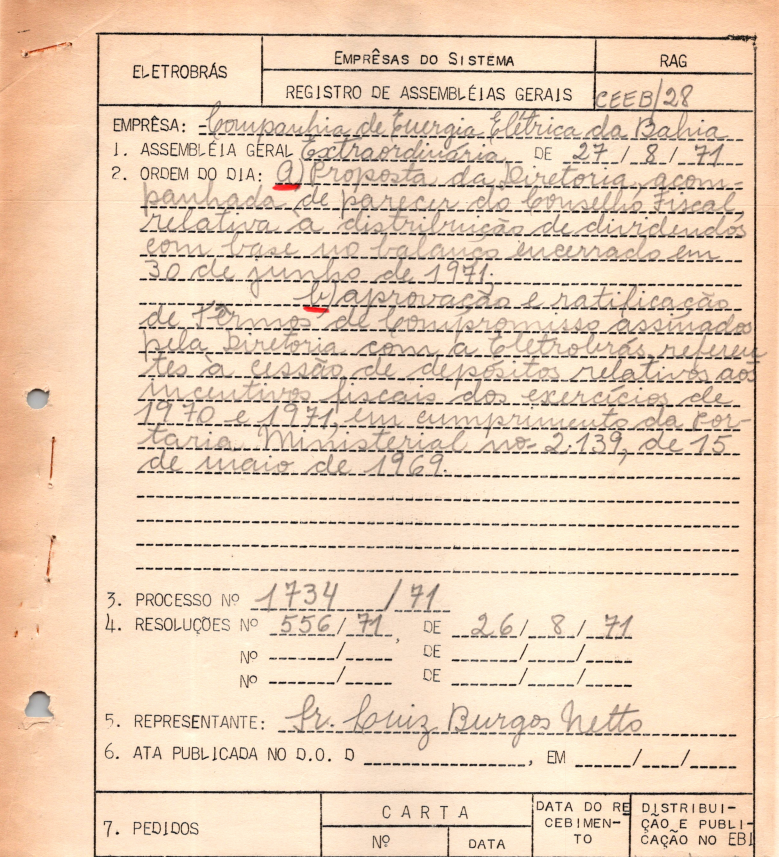 ELETROBRÁS
EMPRÊSAS DO SISTEMA
RAG
REGISTRO DE ASSEMBLÉIAS GERAIS
CEEB/28
EMPRÊSA: Companhia de Energia Elétrica da Bahia
1. ASSEMBLÉIA GERAL Extraordinária DE 27/8/71
2. ORDEM DO DIA: a) Proposta da Diretoria, acom-
panhada de parecer do Conselho Fiscal,
relativa à distribuição de dividendos
com base no balanço encerrado em
30 de junho de 1971;
b) aprovação e ratificação
de Têrmos de Compromisso assinados
pela Diretoria com a Eletrobrás, referen
tes à cessão de depósitos relativos aos
incentivos fiscais dos exercícios de
1970 e 1971, em cumprimento da Por-
taria Ministerial nº 2.139, de 15
de maio de 1969.
3. PROCESSO Nº 1734/71
4. RESOLUÇÕES Nº 556/71, DE 26/8/71
Nº / DE / /
Nº / DE / /
5. REPRESENTANTE: Sr. Luiz Burgos Netto
6. ATA PUBLICADA NO D.O. D , EM / /
7. PEDIDOS
CARTA
Nº
DATA
DATA DO RE
CEBIMEN-
TO
DISTRIBUI-
ÇÃO E PUBLI-
CAÇÃO NO EBI